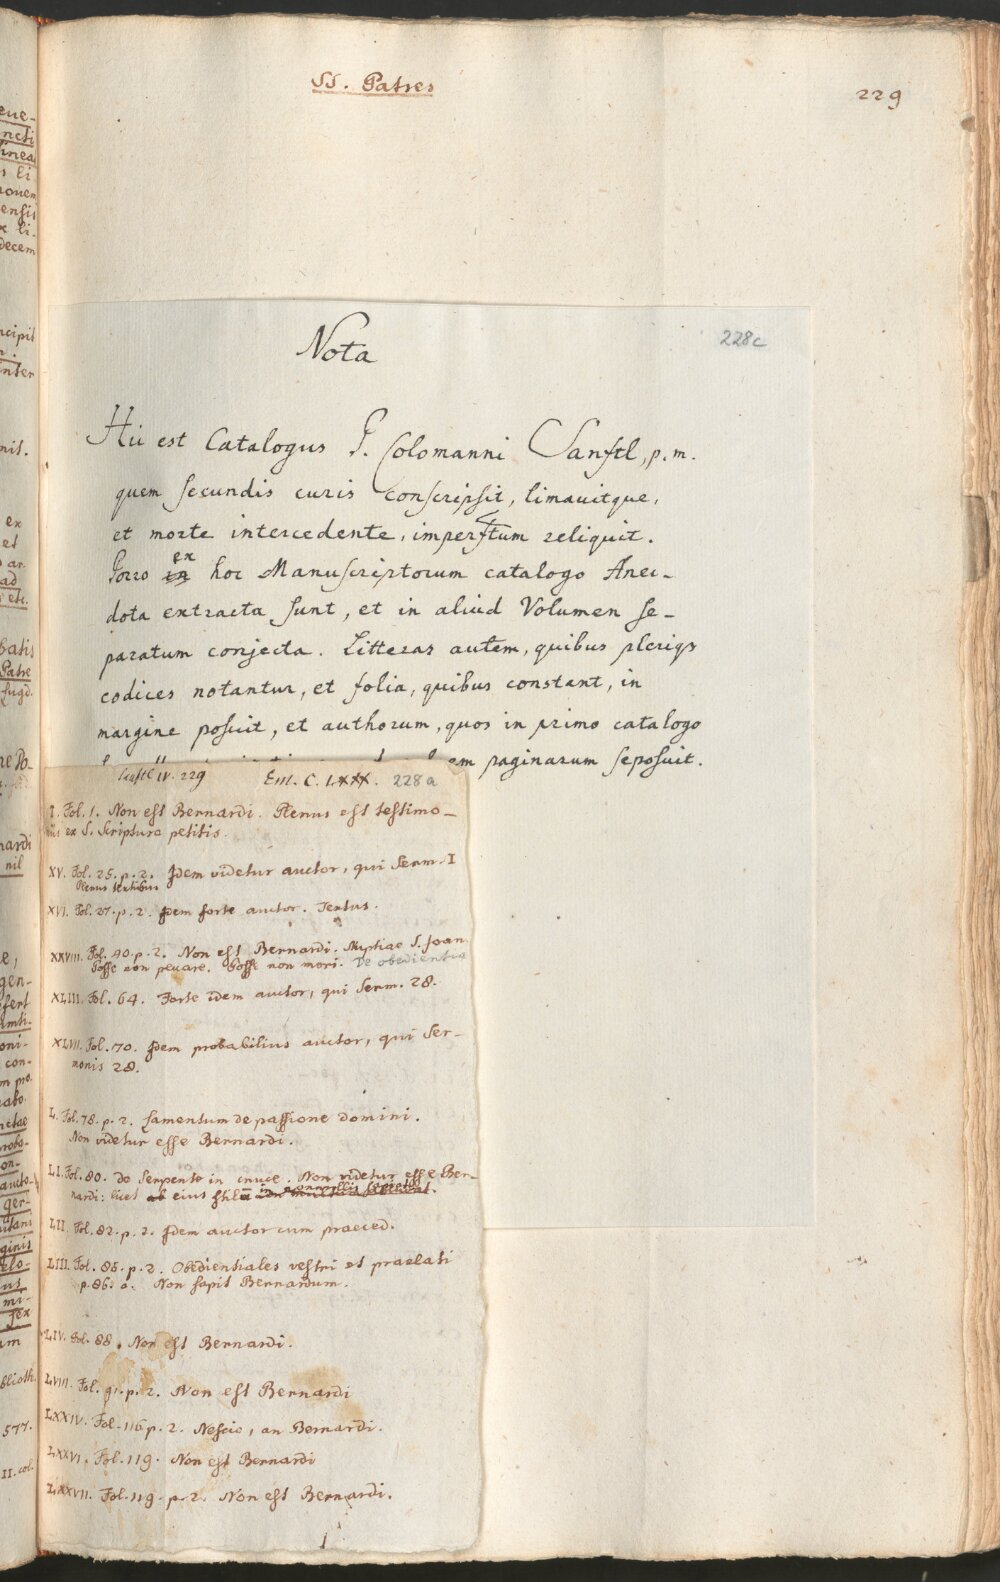 SS. Patres
229
Nota
228c
Hii est Catalogus P. Colomanni Sanftl, p.m.
quem secundis curis conscripsit, limavitque,
et morte intercedente, imperftum reliquit.
Porro ex hoc Manuscriptorum catalogo Anec-
dota extracta sunt, et in aliud Volumen se-
paratum conjecta. Litteras autem, quibus plerique
codices notantur, et folia, quibus constant, in
margine posuit, et authorum, quos in primo catalogo
paginarum seposuit.
IV. 229 Em. C. LXXX. 228a
I. Fol. 1. Non est Bernardi. Plenus est testimo-
niis ex S. Scriptura petitis.
XV. Fol. 25. p. 2. Idem videtur auctor, qui Serm. I
Plenus textibus
XVI. Fol. 27. p. 2. Idem forte auctor. Textus.
XXVIII. Fol. 40. p. 2. Non est Bernardi. Nuptiae S. Joan.
Posse non peccare. Posse non mori. De obedientia
XLIII. Fol. 64. Forte idem auctor, qui Serm. 28.
XLVII. Fol. 70. Idem probabilius auctor, qui Ser-
monis 28.
L. Fol. 78. p. 2. Lamentum de passione Domini.
Non videtur esse Bernardi.
LI. Fol. 80. de Serpente in cruce. Non videtur esse Ber-
nardi: licet ab eius stilo
LII. Fol. 82. p. 2. Idem auctor cum praeced.
LIII. Fol. 85. p. 2. Obedientiales vestri et praelati
p. 86. a. Non sapit Bernardum.
LIV. Fol. 88. Non est Bernardi.
LVIII. Fol. 91. p. 2. Non est Bernardi
LXXIV. Fol. 116 p. 2. Nescio, an Bernardi.
LXXVI. Fol. 119. Non est Bernardi
LXXVII. Fol. 119. p. 2. Non est Bernardi.